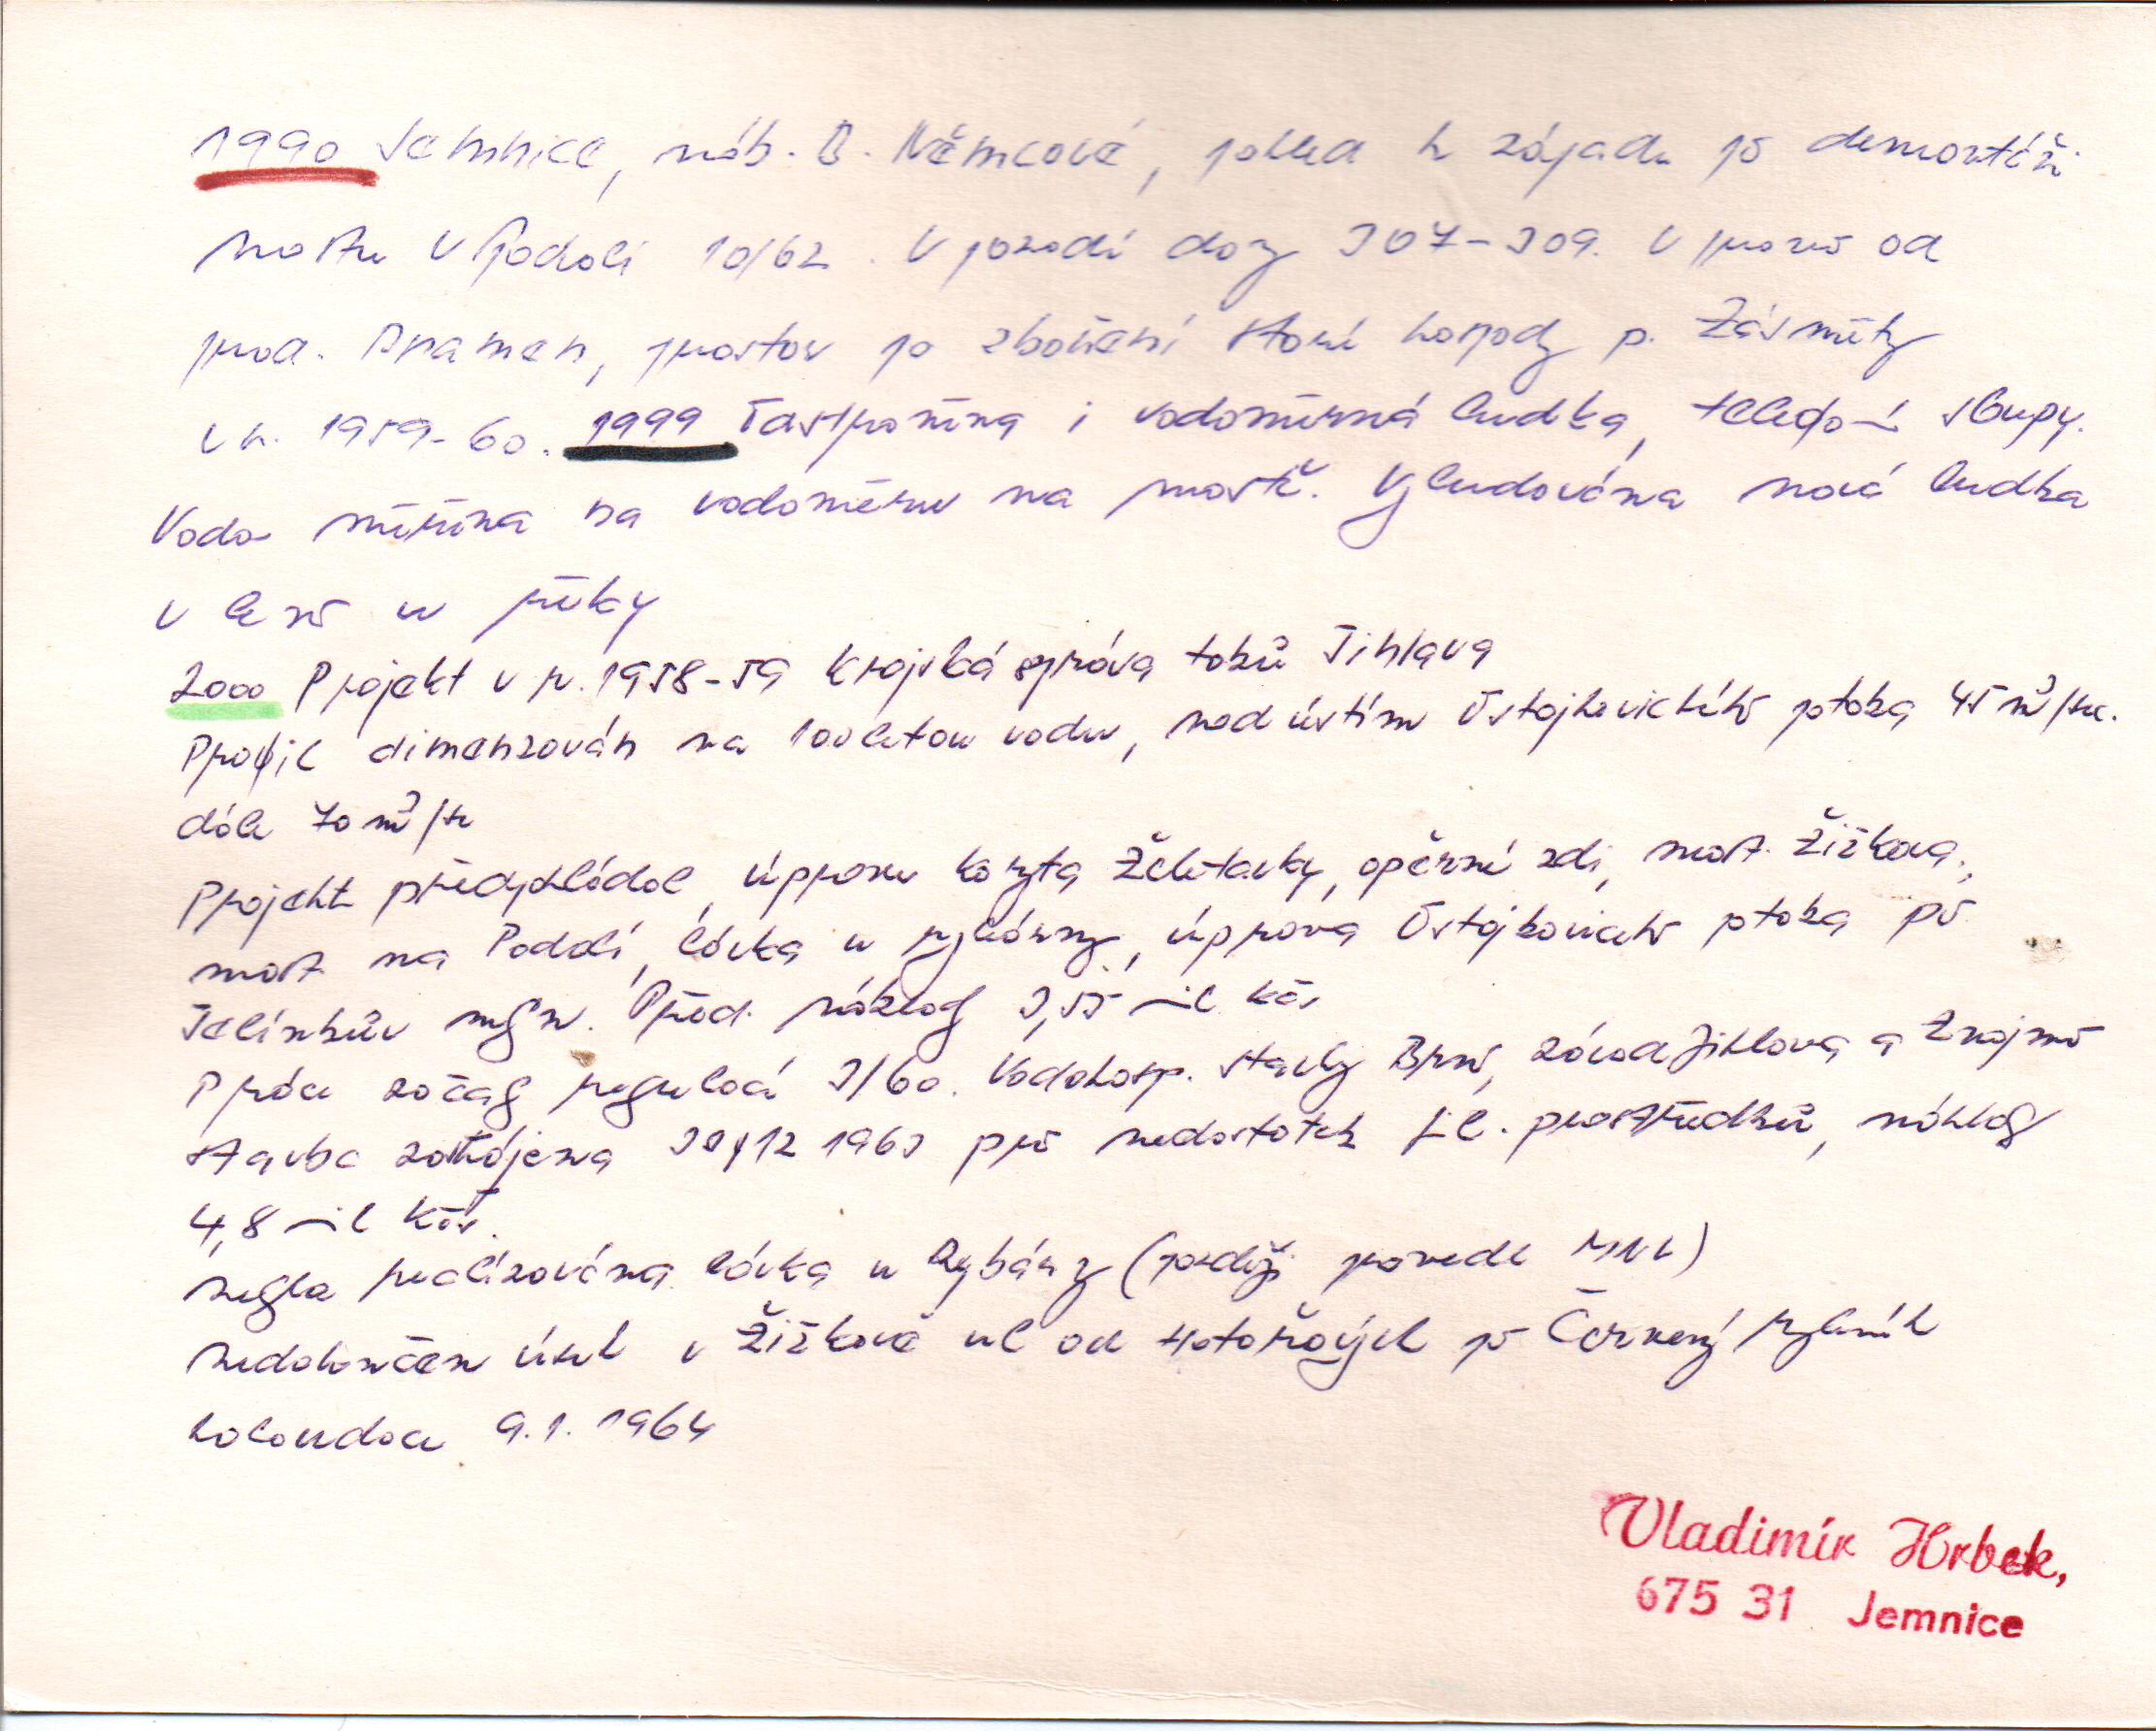 1990 Jemnice, náb. B. Němcové, pohled k západu po demontáži
mostu v Podolí 10/62. V pozadí domy 307-309. Vpravo od
prod. Pramen, prostor po zboření staré hospody p. Zásměty
v r. 1959-60. 1999 i vodoměrná budka, telefoní sloupy.
Voda měřena na vodoměru na mostě. Vybudována nová budka
vlevo u řeky
2000 Projekt v r. 1958-59 Krajská správa toků Jihlava
Profil dimenzován na 100letou vodu, nad ústím Ostojkovického potoka 45 m3/sec.
dále 70 m3/se
Projekt předpokládal úpravu koryta Želetavky, opěrné zdi, most Žižkova,
most na Podolí, lávka u rybárny, úprava Ostojkovického potoka po
Jelínkův mlýn. Před. náklad 3,55 mil Kčs
Práce začaly regulací 3/60. Vodohosp. stavby Brno, závod Jihlava a Znojmo
stavba zastavena 12 1963 pro nedostatek prostředků, náklady
4,8 mil Kčs.
nebyla realizována lávka u Rybárny (později provedl MNV)
nedokončen úsek v Žižkově ul od po Červený rybník
kolaudace 9.1. 1964
Vladimír Hrbek,
675 31 Jemnice